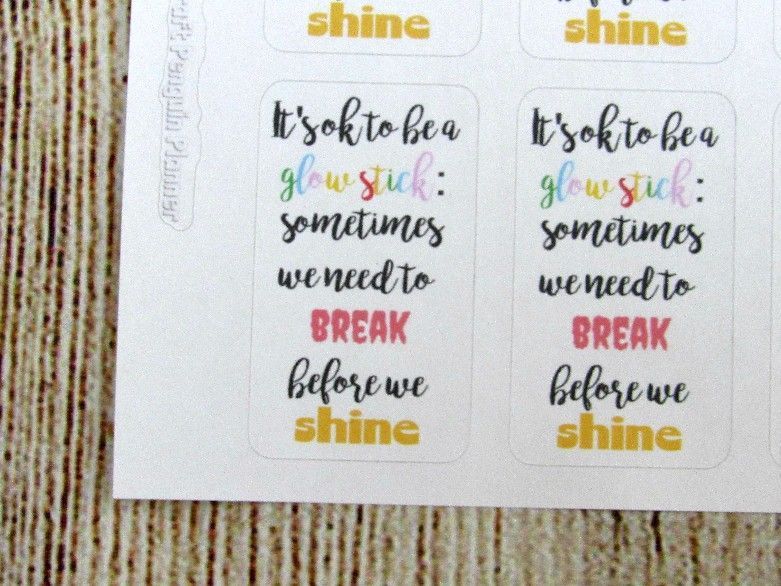 shine
shine
Penguin Planner
It's ok to be a
glow stick:
sometimes
we need to
BREAK
before we
shine
It's ok to be a
glow stick:
sometimes
we need to
BREAK
before we
shine